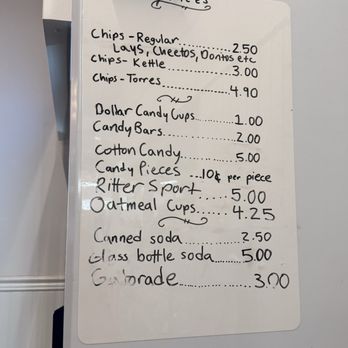 Chips - Regular..........2.50
Lays, Cheetos, Doritos etc
Chips - Kettle..............3.00
Chips - Torres..............4.90
Dollar Candy Cups.......1.00
Candy Bars...............2.00
Cotton Candy...........5.00
Candy Pieces ...10¢ per piece
Ritter Sport.....5.00
Oatmeal Cups.....4.25
Canned soda...........2.50
Glass bottle soda......5.00
Gatorade..............3.00